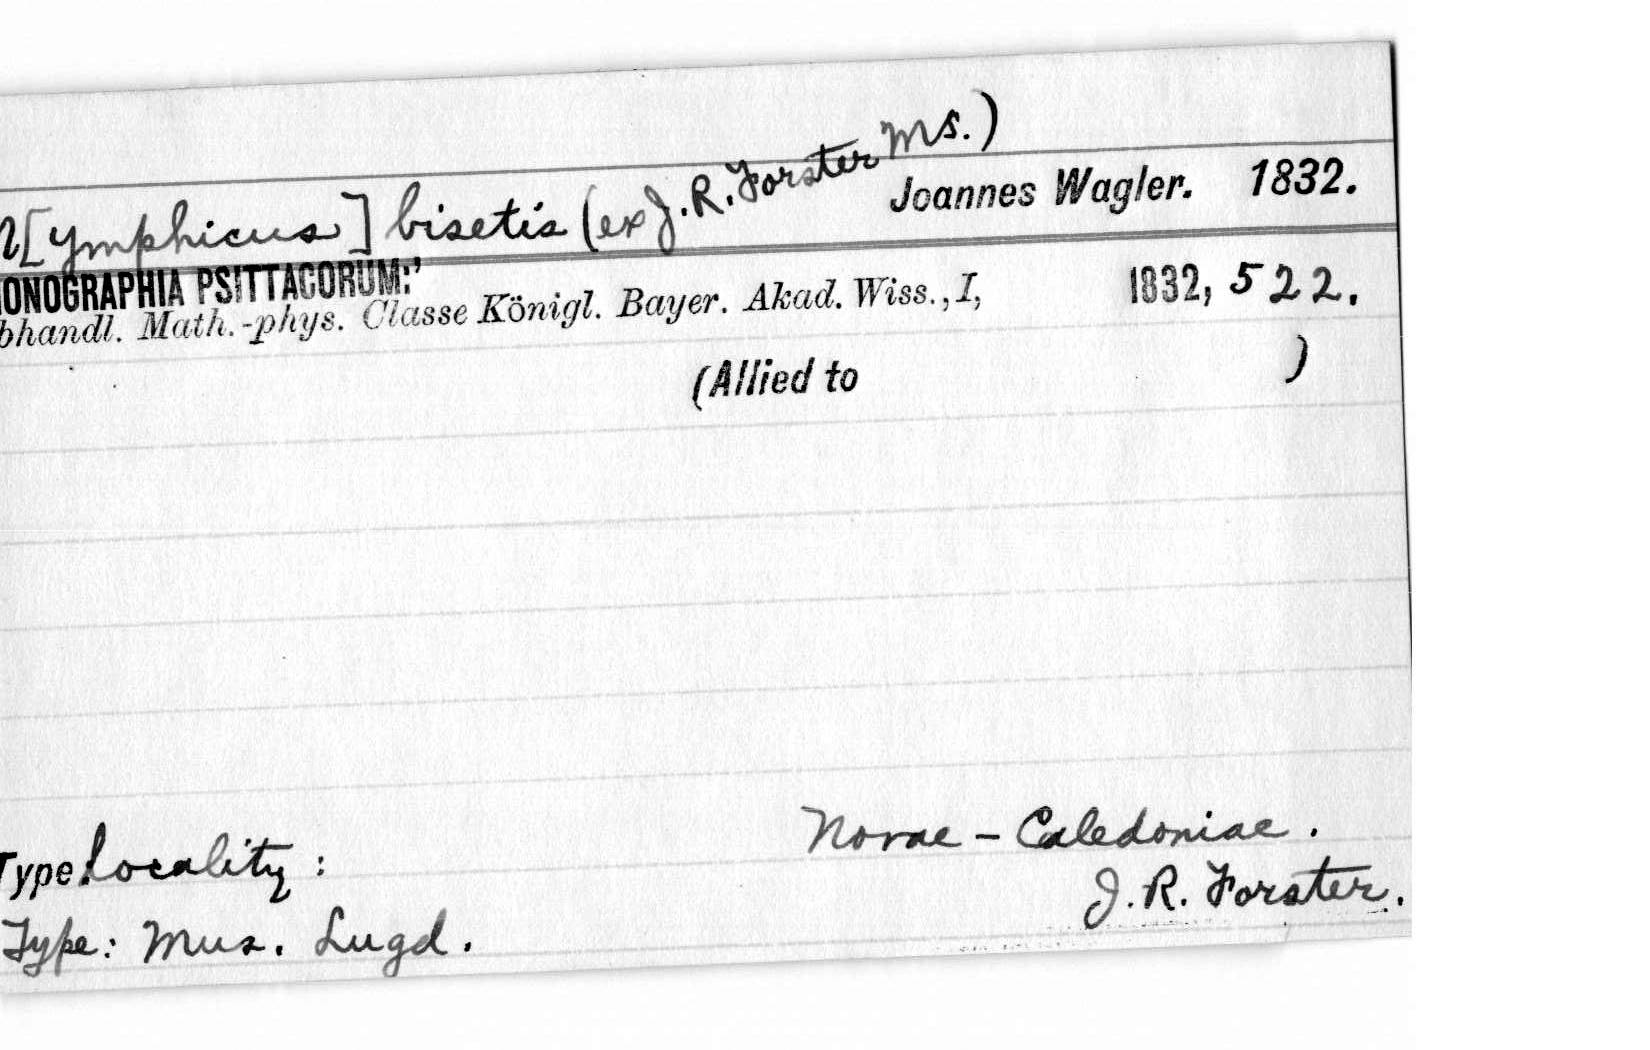 N[ymphicus] bisetis (ex J. R. Forster Ms.) Joannes Wagler. 1832.
ONOGRAPHIA PSITTACORUM:’
bhandl. Math.-phys. Classe Königl. Bayer. Akad. Wiss., I, 1832, 522.
(Allied to )
Novae-Caledoniae.
Type locality:
J. R. Forster.
Type: Mus. Lugd.